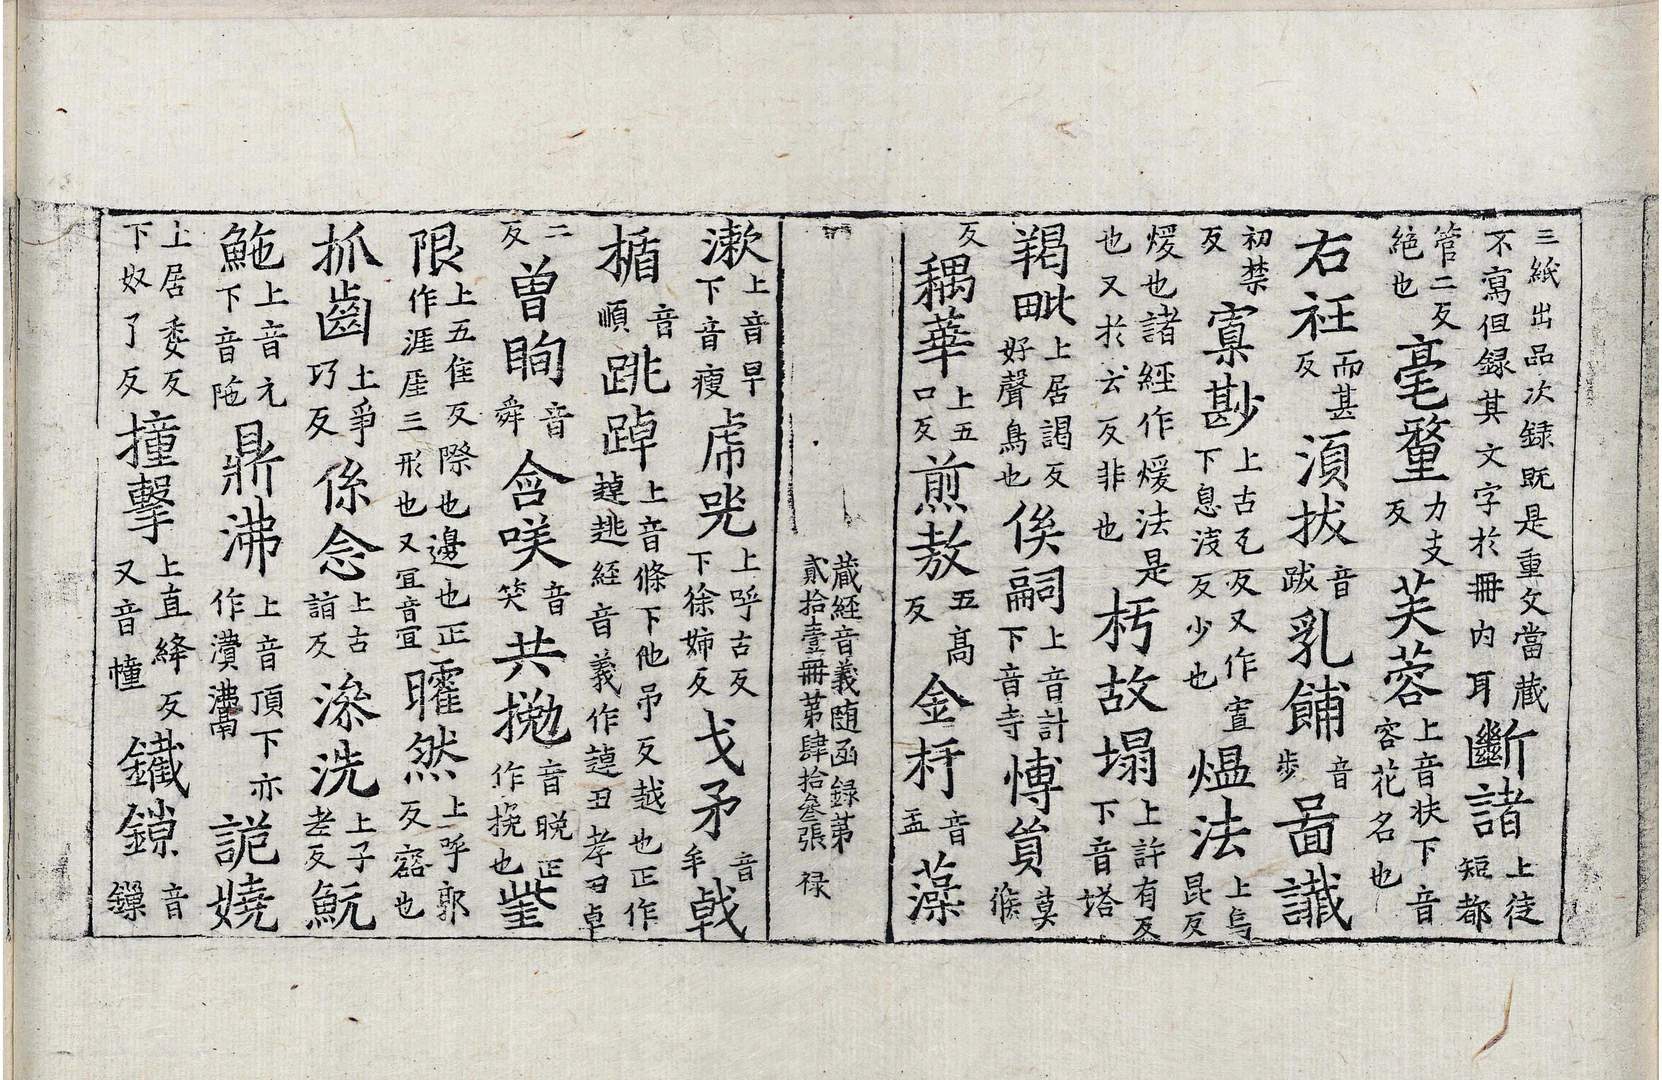 三紙出品次録既是重文當蔵不寫但録其文字於冊内耳斷諸上徒短都
管二反絶也毫釐力支反芙蓉上音扶下音容花名也
右衽而甚反湏拔音跋乳餔音步啚讖
初禁反寡尠上古瓦反又作寡下息淺反少也熅法上烏昆反
煖也諸經作煖法是也又於云反非也杇故塌上許有反下音塔
羯毗上居謁反好聲鳥也俟嗣上音計下音寺愽貿莫候
反耦華上五口反煎敖五高反金杅音盂藻
蔵経音義随函録第貳拾壹冊第肆拾叁張 禄
漱上音早下音瘦虎兕上呼古反下徐姉反戈矛音牟戟
楯音順跳踔上音條下他吊反越也正作趠趒経音義作趠丑孝丑卓
二反曽眴音舜含咲音笑共挽音晚正作挽也觜
限上五隹反際也邊也正作涯厓三形也又冝音冝曤然上呼郭反也
抓齒上爭巧反係念上古詣反澡洗上子老反魭
鮑上音元下音陁鼎沸上音頂下亦作沸詭嬈
上居委反下奴了反撞擊上直絳反又音幢鐵鏁音鏁